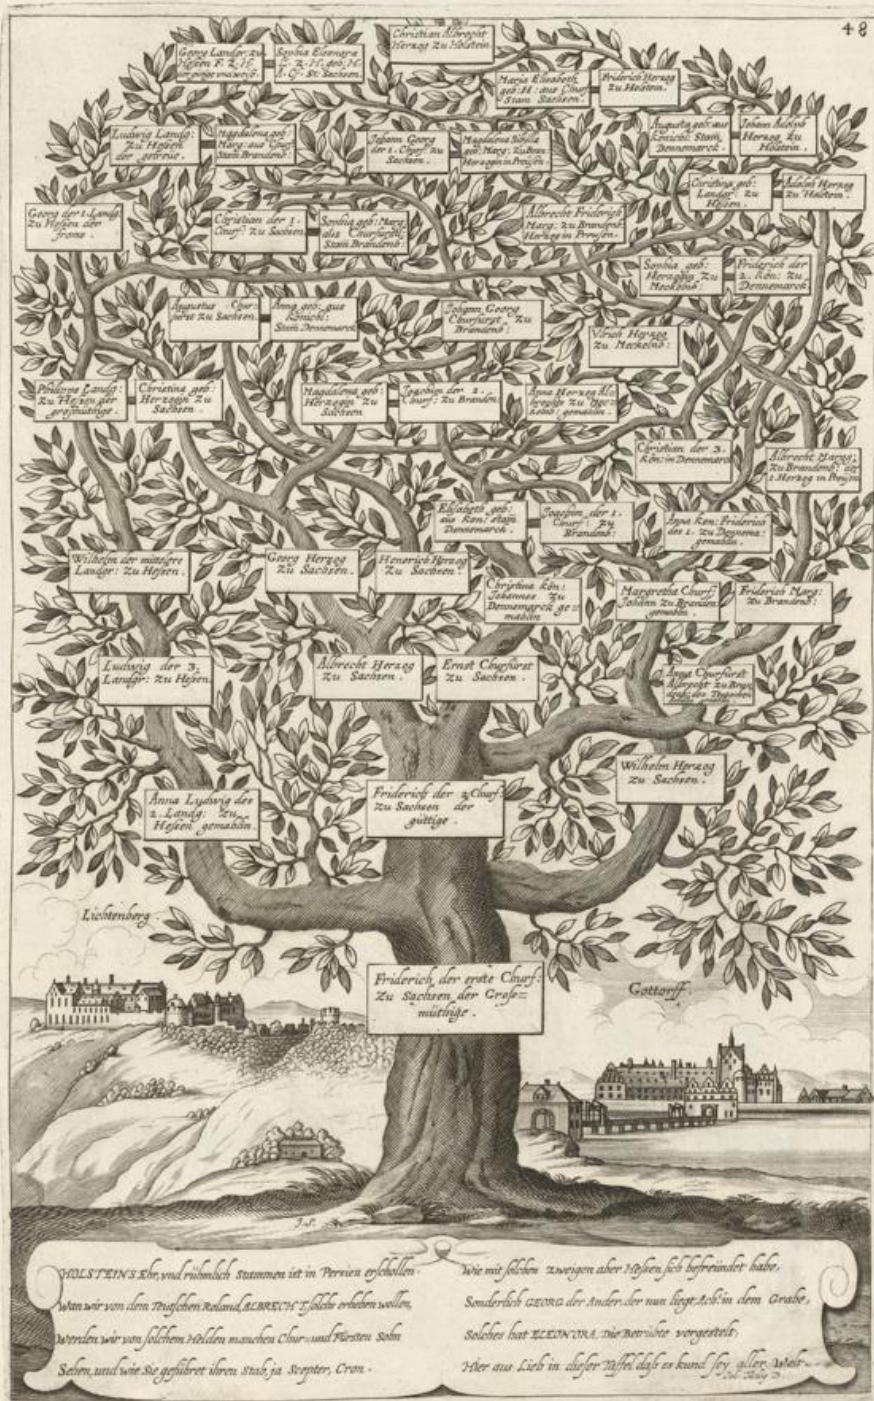 48
Christian Albrecht
Herzog zu Holstein
Georg Landgr: zu
Hessen F. Z. H.
Sophia Eleonora
L. Z. H. geb: H.
St: Sachsen.
Maria Elisabeth
geb: H: aus Churf
Stam Sachsen.
Friderich Herzog
zu Holstein.
Ludwig Landg:
zu Hessen
der getreue.
Magdalena geb:
Marg: aus Churf
Stam Brandenb:
Johann Georg
der 1. Churf: zu
Sachsen.
Magdalena Sibylla
geb: Marg: zu Bran
Herzogin in Preüsen.
Augusta geb: aus
Königl: Stam
Dennemarck.
Johann Adolph
Herzog zu
Holstein.
Christina geb:
Landgr: zu
Hessen.
Adolph Herzog
zu Holstein.
Georg der 1. Landg:
zu Hessen der
fromme.
Christian der 1.
Churf: zu Sachsen
Sophia geb: Marg
aus Churfürstl:
Stam Brandenb:
Albrecht Friderich
Marg: zu Brandenb:
Herzog in Preusen.
Sophia geb:
Herzogin zu
Meckelnb:
Friderich der
2. Kön: zu
Dennemarck
Augustus Chur-
fürst zu Sachsen.
Anna geb: aus
Königl:
Stam Dennemarck
Johann Georg
Churfürst zu
Brandenb:
Vlrich Herzog
zu Meckelnb:
Philipps Landg:
zu Hessen der
großmüthige.
Christina geb:
Herzogin zu
Sachsen.
Magdalena geb:
Herzogin zu
Sachsen
Joachim der 2.
Churf: zu Branden:
Anna Herzog
zu
gemahlin.
Christian der 3.
Kön: in Dennemarck
Albrecht Marg:
zu Brandenb: der
1. Herzog in Preüsen
Elisabeth geb:
aus Kön: stam
Dennemarck.
Joachim der 1.
Churf: zu
Brandenb:
Anna Kön: Friderichs
des 1. zu Dennema:
gemahlin.
Wilhelm der mittlere
Landgr: zu Hessen.
Georg Herzog
zu Sachsen.
Henerich Herzog
zu Sachsen.
Christina Kön:
Johannes zu
Dennemarck ge=
mahlin
Margretha Churf
Johann zu Branden:
gemahlin.
Friderich Marg:
zu Brandenb:
Ludwig der 3.
Landgr: zu Hessen.
Albrecht Herzog
zu Sachsen.
Ernst Churfürst
zu Sachsen.
Anna Churfürst
Albrecht zu Bran
denb: des Teutschen
Wilhelm Herzog
zu Sachsen.
Anna Ludwig des
2. Landg: zu
Hessen gemahlin.
Friderich der 2. Churf:
zu Sachsen der
güttige.
Friderich der erste Churf:
zu Sachsen der Gros=
müthige.
Lichtenberg.
Gottorff.
J.S.
HOLSTEINS Ehr, und rühmlich Stammen ist in Persien erschollen.
Wan wir von dem Teutschen Roland, ALBRECHT, solchs erheben wollen,
Werden wir von solchem Helden manchen Chur= und Fürsten Sohn
Sehen, und wie Sie geführet ihren Stab, ja Scepter, Cron.
Wie mit solchen zweigen aber Hessen sich befreündet habe,
Sonderlich GEORG der Ander, der nun liegt, Ach! in dem Grabe,
Solches hat ELEONORA, Die Betrübte vorgestelt,
Hier aus Lieb in dieser Taffel daß es kund sey aller Welt.